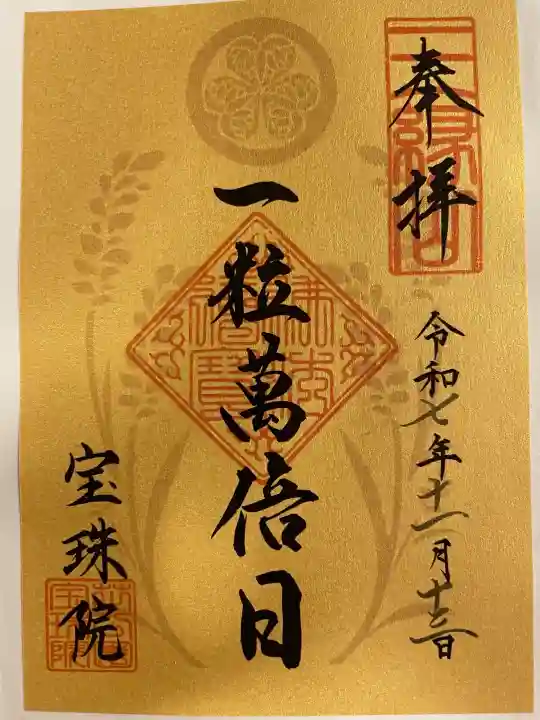 奉拝
令和七年十一月十三日
一粒萬倍日
宝珠院
佛法僧寶